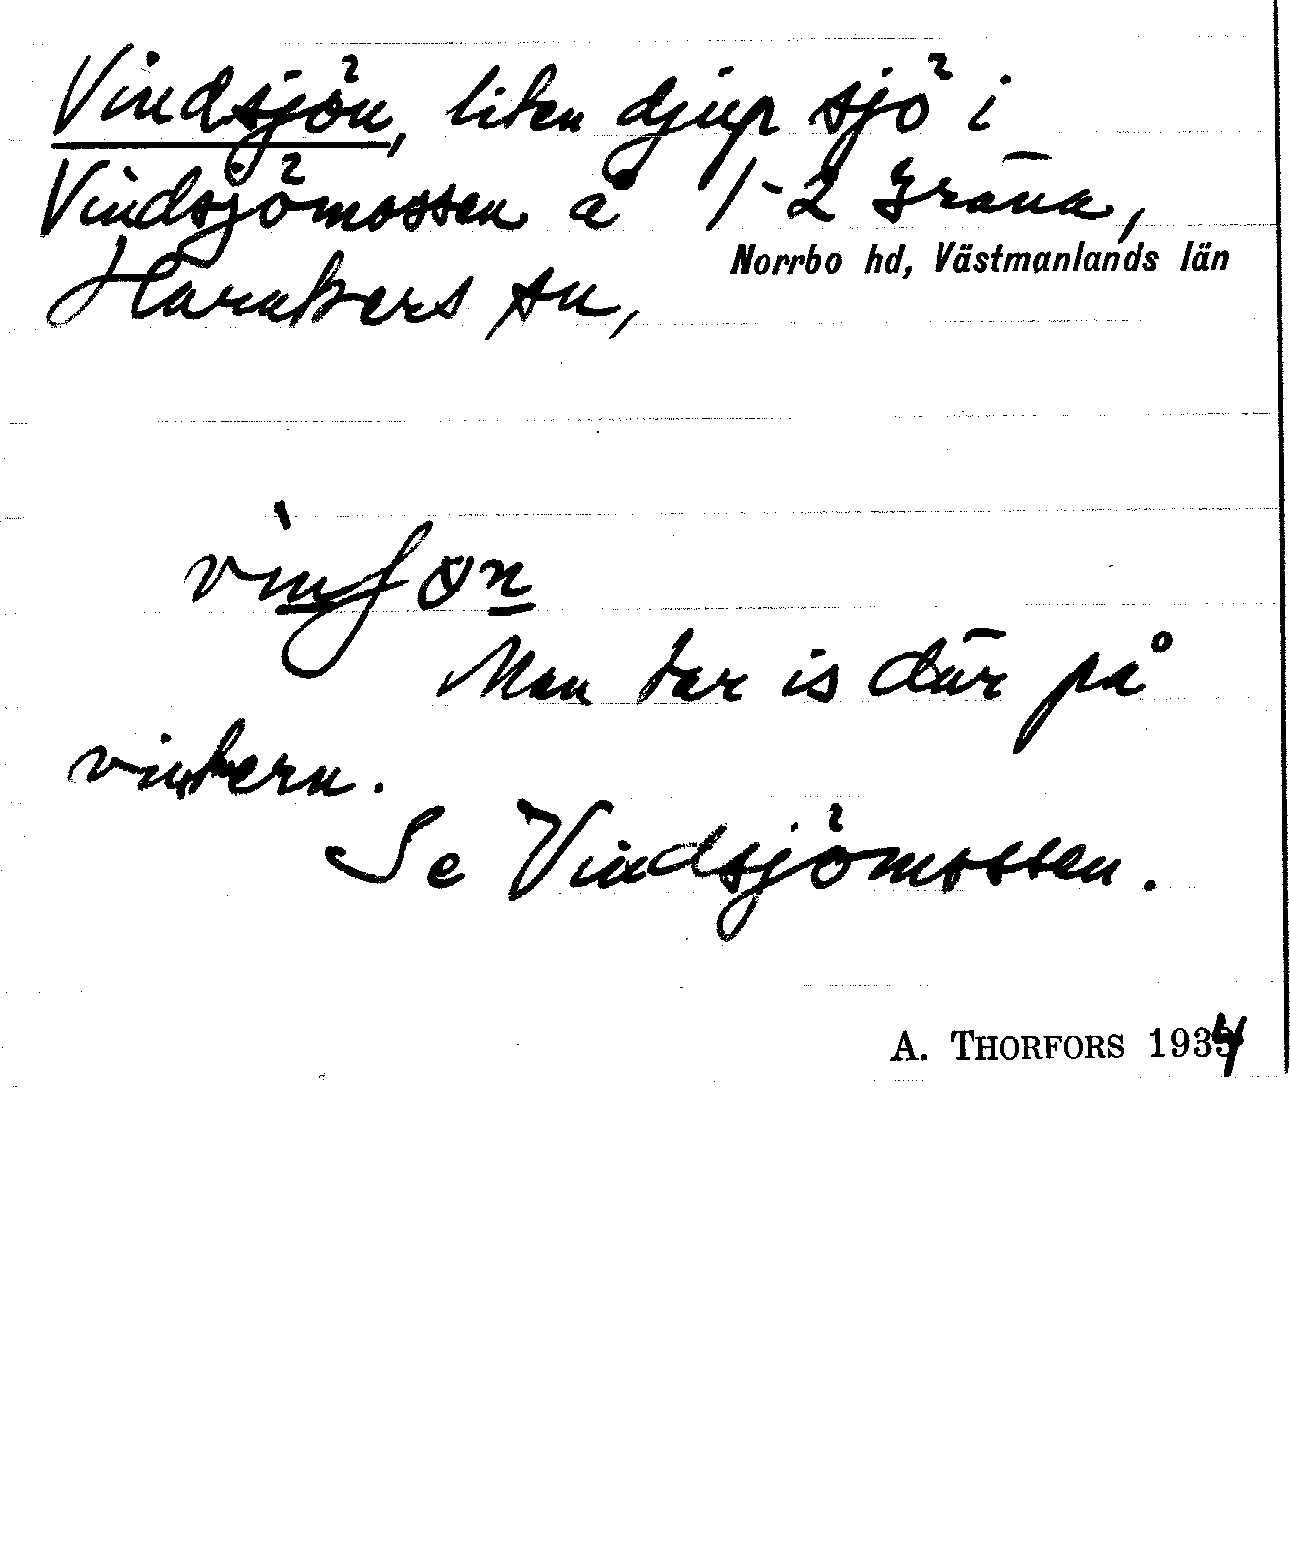 Vindsjön, liten djup sjö i
Vindsjömossen å 1-2 Gräna,
Norrbo hd, Västmanlands län
Haraker sn,
vìnʃøn
Man tar is där på
vintern.
Se Vindsjömossen.
A. THORFORS 1934